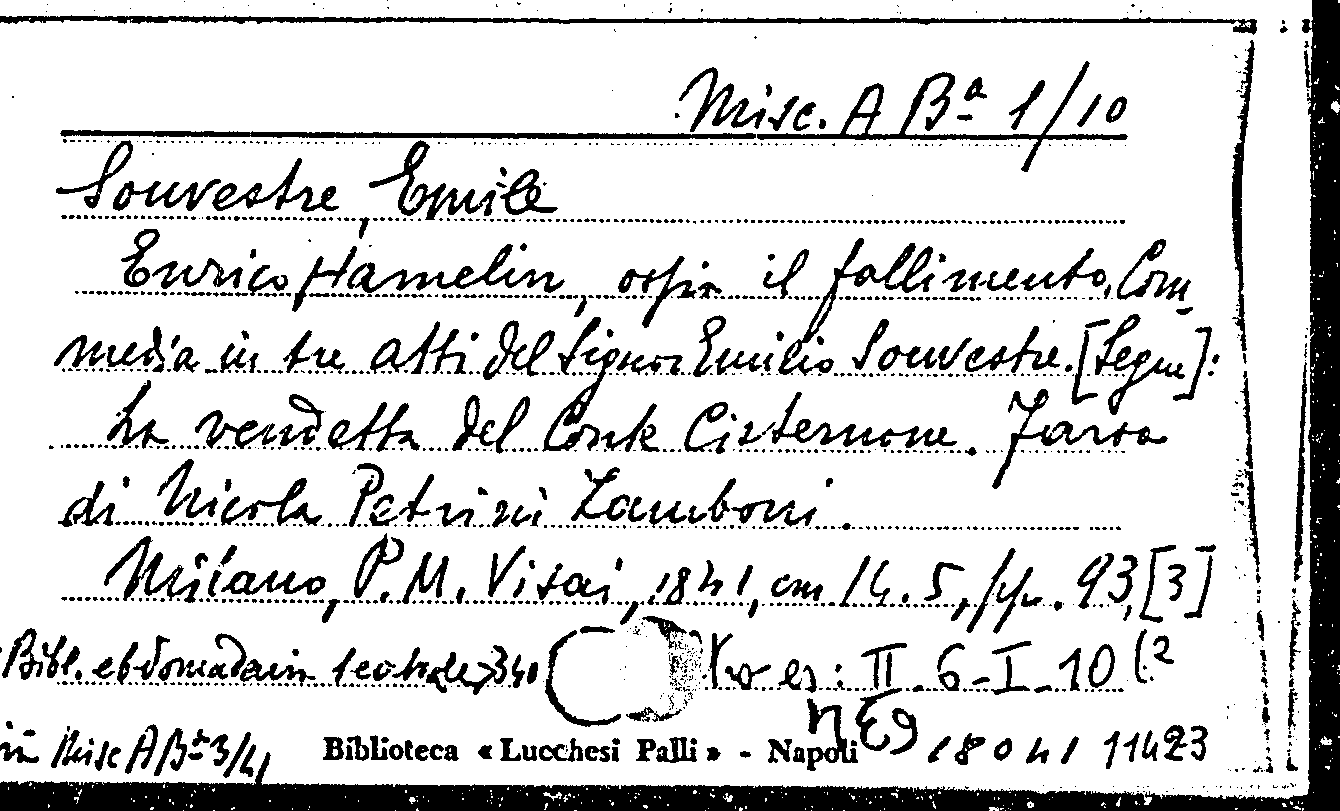 Misc. A Bª 1/10
Souvestre, Emile
Enrico Hamelin, ossia il fallimento. Com-
media in tre atti del Signor Emilio Souvestre. [Segue]:
La vendetta del Conte Cisternone. Farsa
di Nicola Petrini Zamboni.
Milano, P. M. Visai, 1841, cm 14.5, pp. 93, [3]
Bibl. ebdomadaria teatrale, 340
es: II. 6-I-10 (2
in Misc A Bª 3/41
Biblioteca « Lucchesi Palli » - Napoli
18041 11423